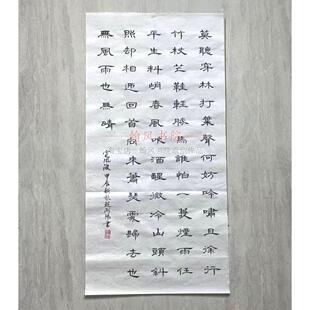 莫聽穿林打葉聲何妨吟嘯且徐行
竹杖芒鞋輕勝馬誰怕一蓑煙雨任
平生料峭春風吹酒醒微冷山頭斜
照却相迎回首向來蕭瑟處歸去也
無風雨也無晴
定風波 甲辰新秋 書
翰风书院